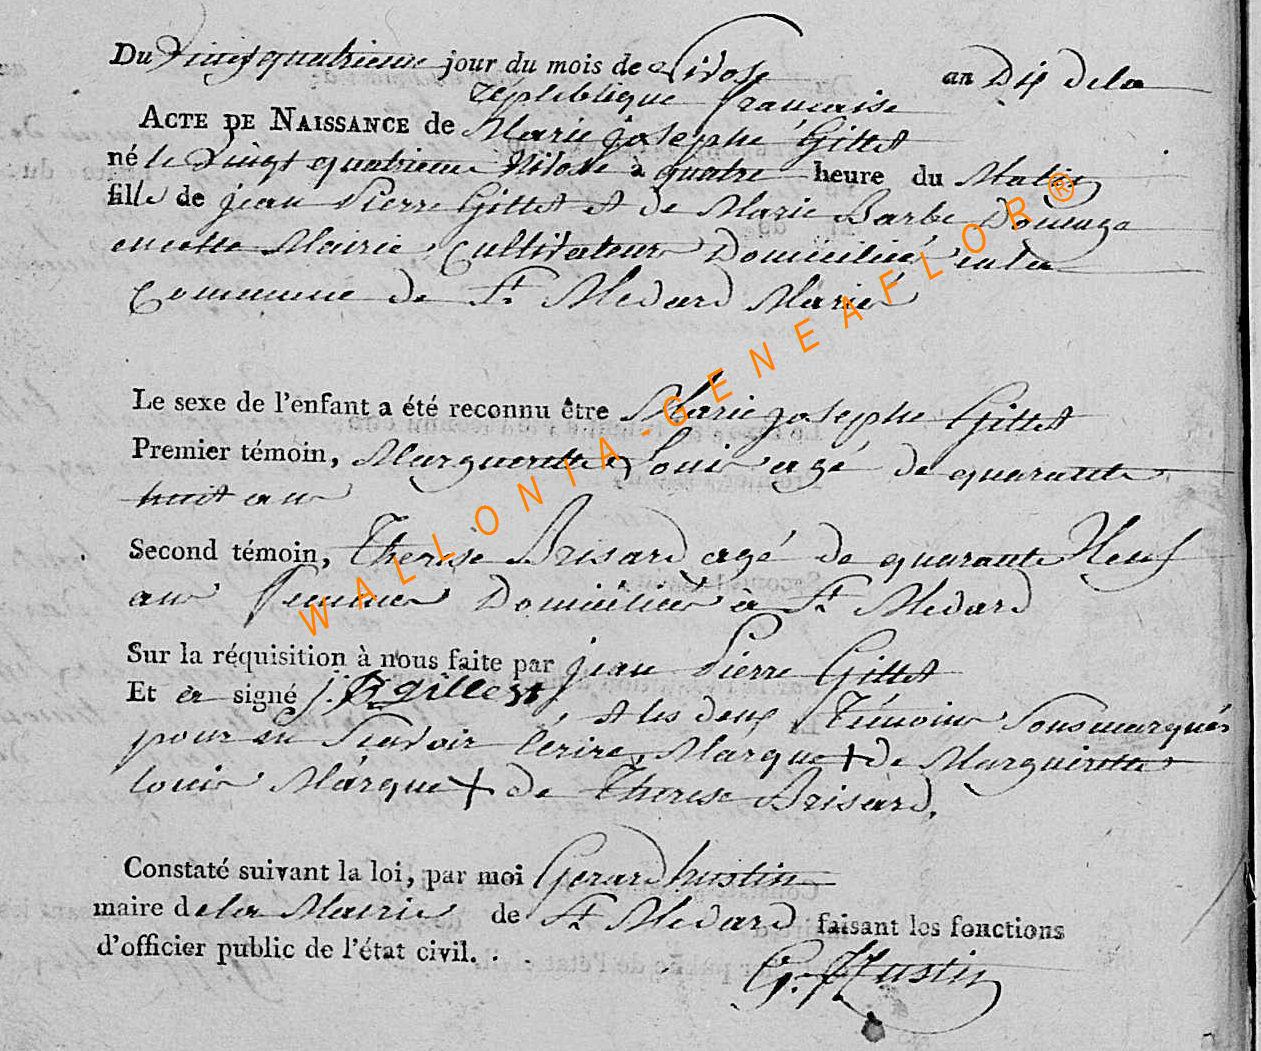 Du Vingt quatrieme jour du mois de Nivose an Dix de la
republique francaise
ACTE DE NAISSANCE de Marie josephe Gillet
né le Vingt quatrieme Nivose à quatre heure du Matin
fille de jean Pierre Gillet et de Marie Barbe
en cette Mairie Cultivateur Domiciliée en la
Commune de St Medard Mariés
Le sexe de l'enfant a été reconnu être Marie josephe Gillet
Premier témoin, Marguerette Louis agé de quarante
huit an
Second témoin, Therese Brisard agé de quarante Neuf
ans femmes Domiciliées à St Medard
Sur la réquisition à nous faite par jean Pierre Gillet
Et a signé j. P gillet
et les deux Témoins Sousmarqués
pour en Scavoir l'érire, Marque + de Marguerette
louis Marque + de Therese Brisard,
Constaté suivant la loi, par moi Gerard hustin
maire de la Mairie de St Medard faisant les fonctions
d'officier public de l'état civil.
G. Hustin
WALLONIA-GENEAFLOR®